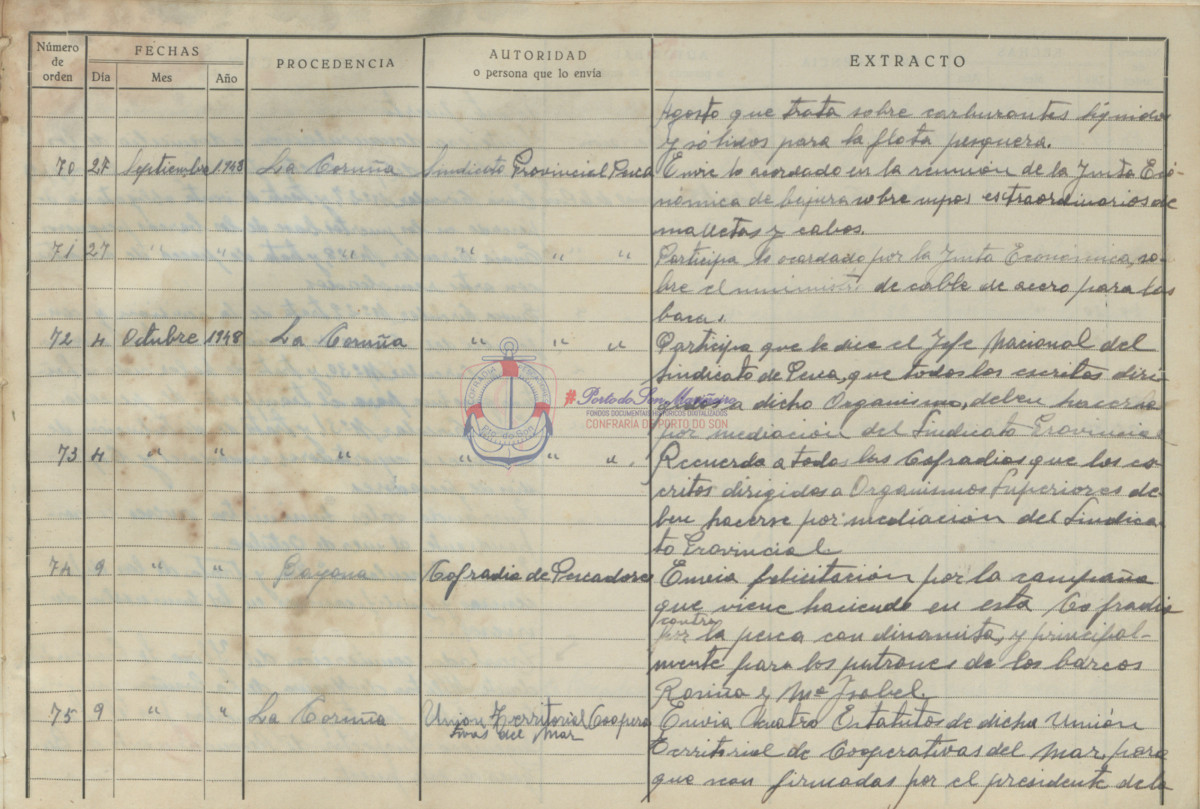 Número de orden FECHAS PROCEDENCIA AUTORIDAD o persona que lo envía EXTRACTO
Día Mes Año
Agosto que trata sobre carburantes líquidos
y sólidos para la flota pesquera.
70 27 Septiembre 1948 La Coruña Sindicato Provincial Pesca Envia lo acordado en la reunión de la Junta Eco-
nómica de bajura sobre cupos extraordinarios de
malletas y cabos.
71 27 " " " " " " Participa lo acordado por la Junta Económica, so-
bre el suministro de cable de acero para las
baca.
72 4 Octubre 1948 La Coruña " " " Participa que le dice el Jefe Nacional del
Sindicato de Pesca, que todos los escritos diri-
gidos a dicho Organismo, deben hacerse
por mediación del Sindicato Provincial
73 4 " " " " " " Recuerda a todas las Cofradias que los es-
critos dirigidos a Organismos Superiores de-
ben hacerse por mediación del Sindica-
to Provincial
74 9 " " Bayona Cofradia de Pescadores Envia felicitación por la campaña
que viene haciendo en esta Cofradia
contra
por la pesca con dinamita, y principal-
mente para los patrones de los barcos
y Mª Isabel.
75 9 " " La Coruña Unión Territorial Coopera Envia cuatro Estatutos de dicha Unión
tivas del Mar
Territorial de Cooperativas del Mar, para
que sean firmadas por el presidente de la
CONFRADIA PESCADORES
Pto. do Son
#PortodoSonMariñeiro
FONDOS DOCUMENTAIS HISTÓRICOS DIGITALIZADOS
CONFRARIA DE PORTO DO SON